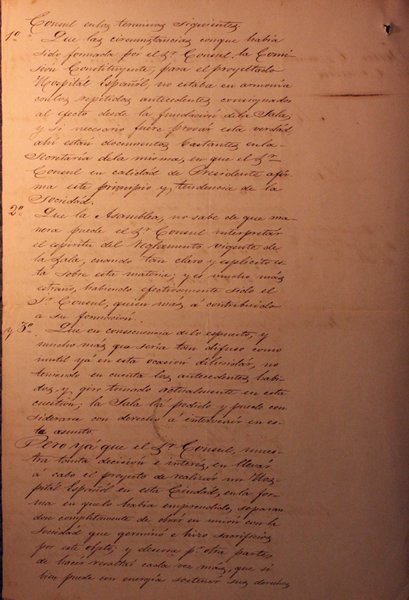 Consul en los terminos siguientes
1º Que las circunstancias conque habia
sido formada por el Sr Consul la Comi
sión Constituyente, para el proyectado
Hospital Español, no estaba en armonia
con los repetidos antecedentes consignados
al efecto desde la fundación de la Sala,
y si necesario fuere provar esta verdad
ahi están documentos bastantes en la
Secretaria de la misma, en que el Sr
Consul en calidad de Presidente afir
ma este principio y tendencia de la
Sociedad.
2º Que la Asamblea, no sabe de que ma
nera puede el Sr Consul interpretar
el espiritu del Reglamento vigente de
la Sala, cuando tan claro y esplicito es
ta sobre esta materia; y es mucho más
estraño, habiendo efectivamente sido el
Sr Consul, quien más á contribuido
a su formación.
y 3º Que en consecuencia de lo espuesto, y
mucho más que seria tan difuso como
inutil yá en esta ocasión dilucidar, no
teniendo en cuenta los antecedentes habi
dos y giro tomado actualmente en esta
cuestion; la Sala há podido y puede con
siderarse con derecho á intervenir en es
te asunto.
Pero yá que el Sr Consul, mues
tra tanta decisión e interés, en llevar
á cabo el proyecto de realizar un Hos
pital Español en esta Ciudad, en la for
ma en que lo habia emprendido, separan
dose completamente de obrar en unión con la
Sociedad que germinó e hizo sacrificios
por este objeto; y deseosa pr otra parte,
de hacer resaltar cada vez más, que si
bien puede con energia sostener sus derechos